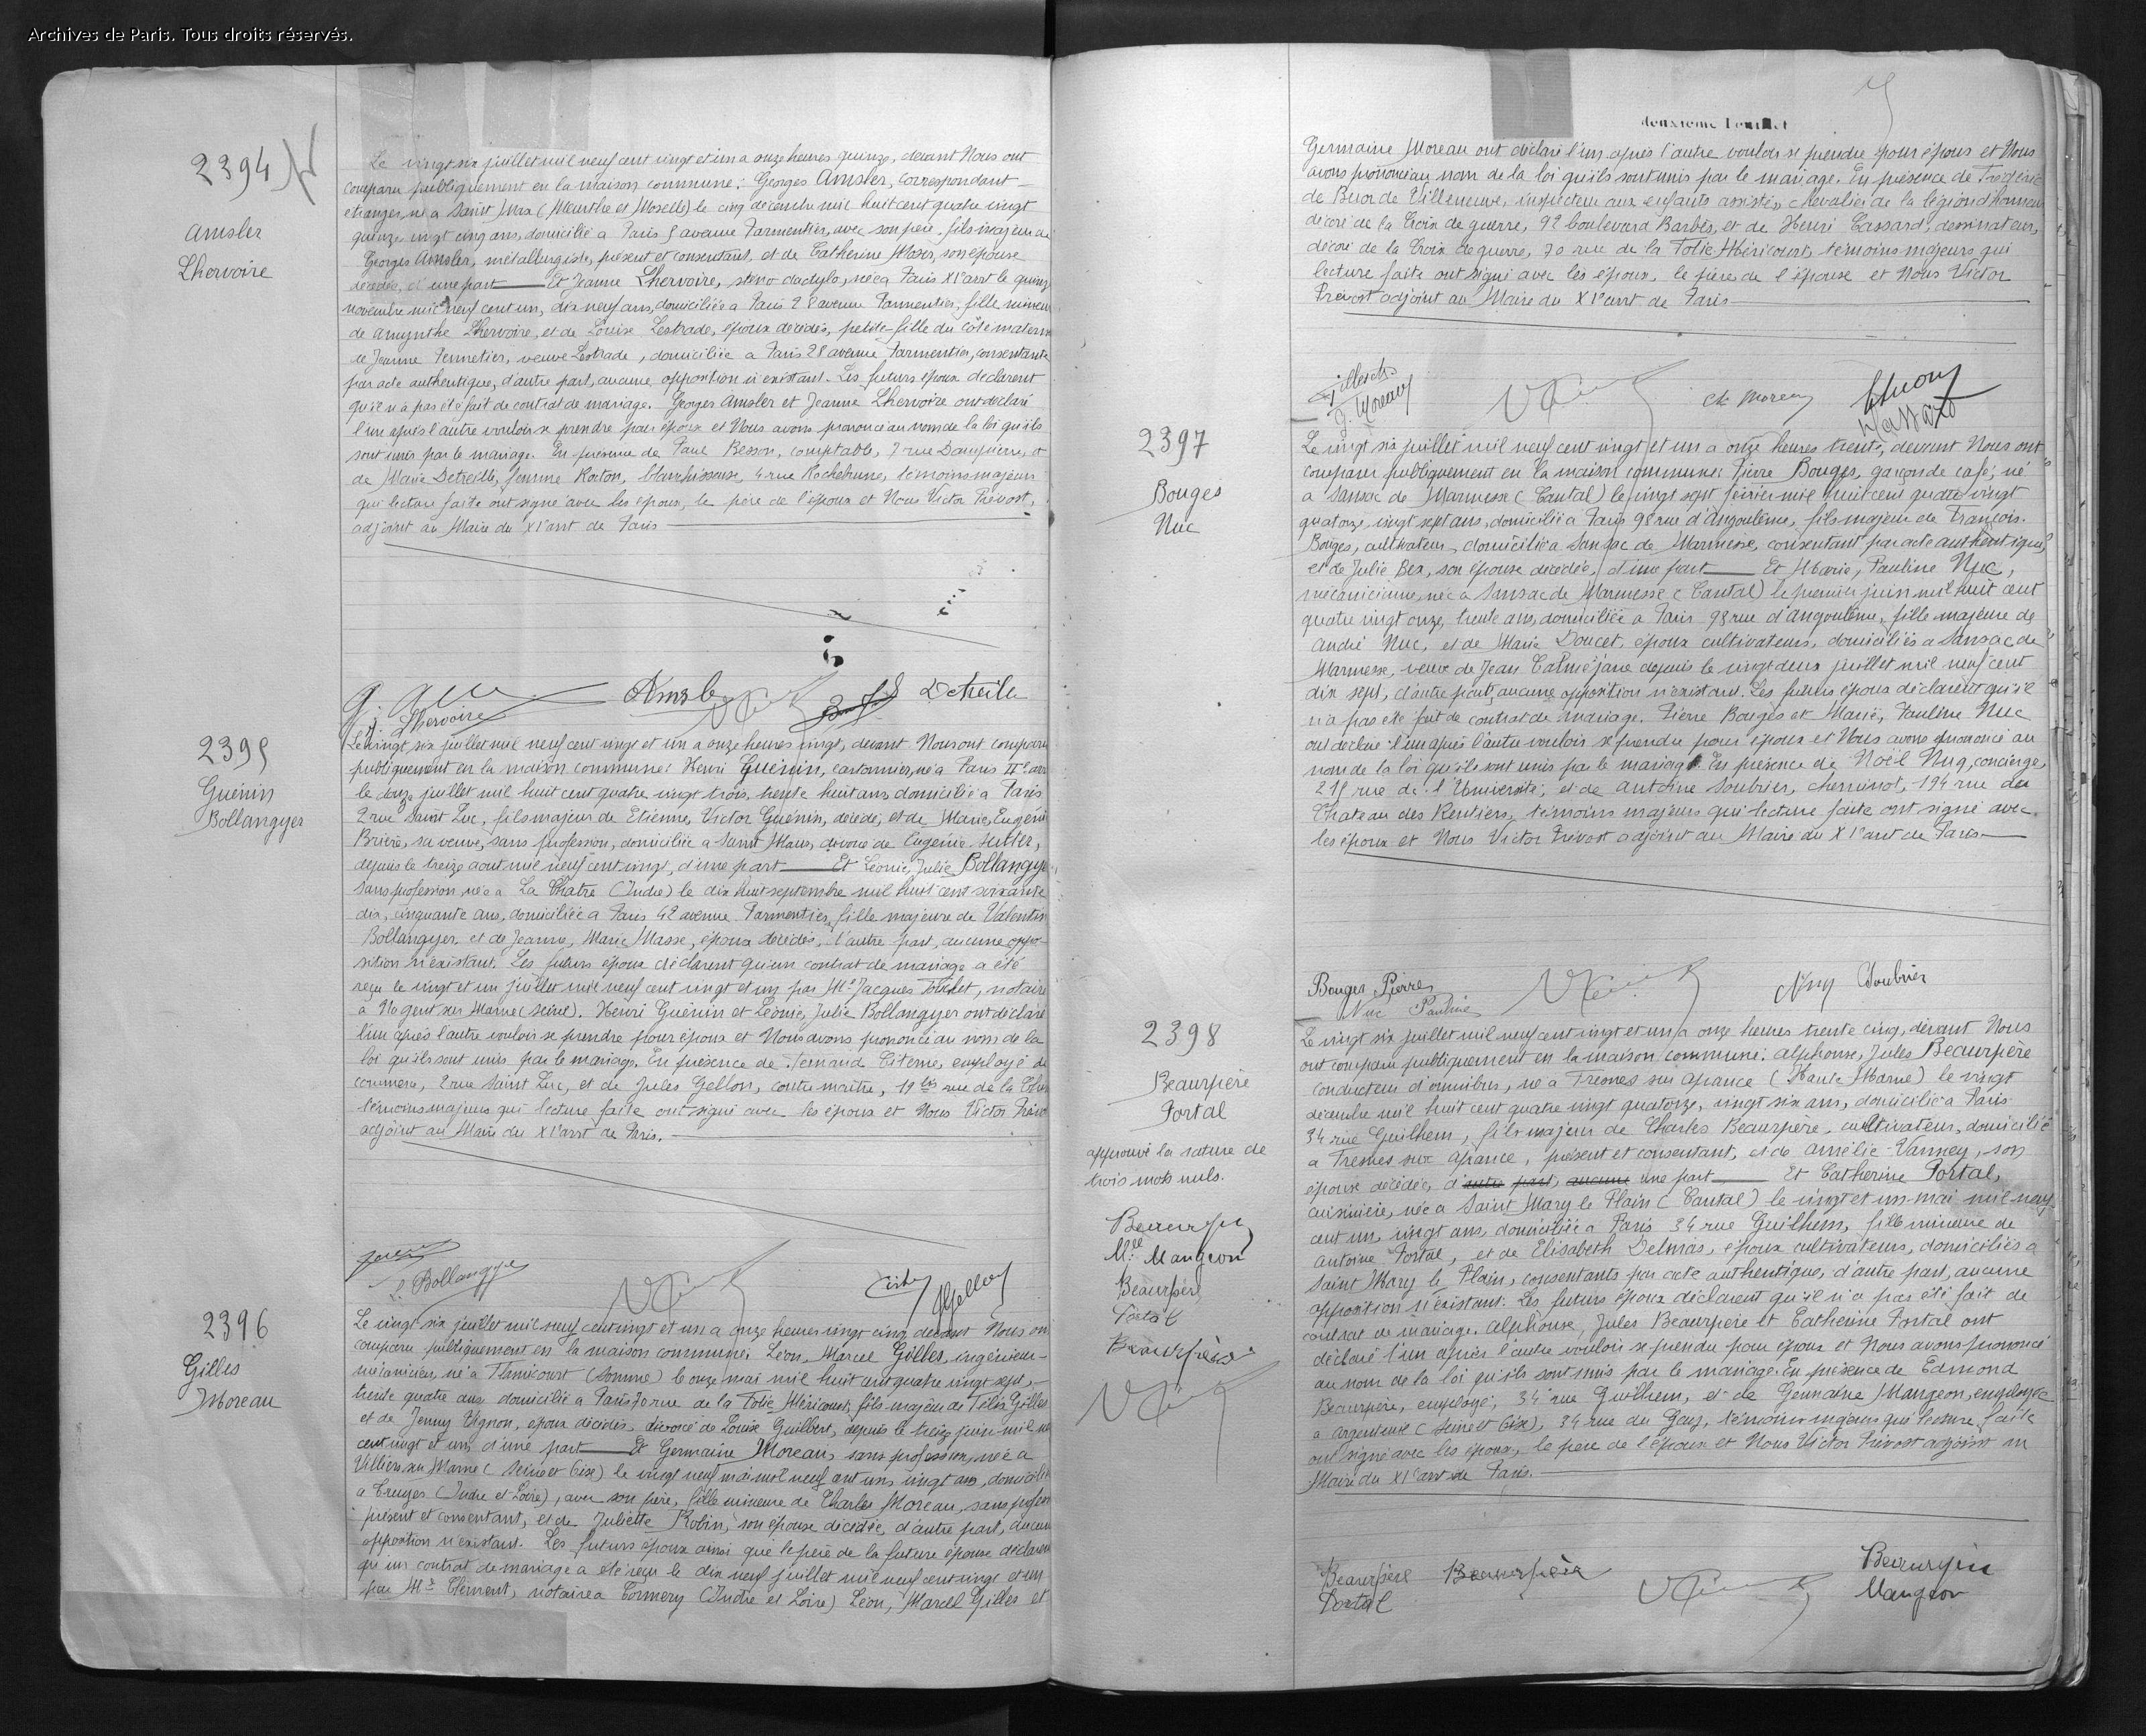 Archives de Paris. Tous droits réservés.
2394
Amsler
Lhervoire
Le vingt six juillet mil neuf cent vingt et un a onze heures quinze, devant Nous ont
comparu publiquement en la maison commune: Georges Amsler, correspondant
etranger, né a Saint Max (Meurthe et Moselle) le cinq décembre mil huit cent quatre vingt
quinze, vingt cinq ans, domicilié a Paris 5 avenue Parmentier, avec son père, fils majeur de
Georges Amsler, métallurgiste, présent et consentant, et de Catherine Moser, son épouse
décédée, d'une part Et Jeanne Lhervoire, sténo dactylo, née a Paris XIe arrt le quinze
novembre mil neuf cent un, dix neuf ans, domiciliée a Paris 28 avenue Parmentier, fille mineure
de Amynthe Lhervoire, et de Louise Lestrade, époux décédés, petite-fille du côté maternel
de Jeanne Pennetier, veuve Lestrade, domiciliée a Paris 28 avenue Parmentier, consentante
par acte authentique, d'autre part, aucune opposition n'existant. Les futurs époux déclarent
qu'il n'a pas été fait de contrat de mariage. Georges Amsler et Jeanne Lhervoire ont déclaré
l'un après l'autre vouloir se prendre pour époux et Nous avons prononcé au nom de la loi qu'ils
sont unis par le mariage. En présence de Paul Besson, comptable, 7 rue Dampierre, et
de Marie Detreille, femme Rocton, blanchisseuse, 4 rue Rochebrune, témoins majeurs
qui lecture faite ont signé avec les époux, le père de l'époux et Nous Victor Prévost,
adjoint au Maire du XIe arrt de Paris
Amsler Detreille
J. Lhervoire
2395
Guénin
Bollangyer
Le vingt six juillet mil neuf cent vingt et un a onze heures vingt, devant Nous ont comparu
publiquement en la maison commune: Henri Guénin, cartonnier, né a Paris IIe arr
le douze juillet mil huit cent quatre vingt trois, trente huit ans, domicilié a Paris
2 rue Saint Luc, fils majeur de Etienne, Victor Guénin, décédé, et de Marie, Eugénie
Brière, sa veuve, sans profession, domiciliée a Saint Maur, divorcé de Eugénie Sutter,
depuis le treize aout mil neuf cent vingt, d'une part Et Léonie, Julie Bollangyer
sans profession, née a La Chatre (Indre) le dix huit septembre mil huit cent soixante
dix, cinquante ans, domiciliée a Paris 42 avenue Parmentier, fille majeure de Valentin
Bollangyer, et de Jeanne, Marie Masse, époux décédés, d'autre part, aucune oppo-
sition n'existant. Les futurs époux déclarent qu'un contrat de mariage a été
reçu le vingt et un juillet mil neuf cent vingt et un par Me Jacques Touchet, notaire
à Nogent sur Marne (Seine). Henri Guénin et Léonie, Julie Bollangyer ont déclaré
l'un après l'autre vouloir se prendre pour époux et Nous avons prononcé au nom de la
loi qu'ils sont unis par le mariage. En présence de Fernand Citerne, employé de
commerce, 2 rue Saint Luc, et de Jules Gellon, contre maître, 19 bis rue de la
témoins majeurs qui lecture faite ont signé avec les époux et Nous Victor Prévost
adjoint au Maire du XIe arrt de Paris.
L. Bollangyer
2396
Gilles
Moreau
Le vingt six juillet mil neuf cent vingt et un a onze heures vingt cinq, devant Nous ont
comparu publiquement en la maison commune: Léon, Marcel Gilles, ingénieur-
mécanicien, né a (Somme) le onze mai mil huit cent quatre vingt sept,
trente quatre ans, domicilié a Paris 70 rue de la Folie Méricourt, fils majeur de Félix Gilles
et de Jenny Vignon, époux décédés, divorcé de Louise Guilbert, depuis le treize juin mil neuf
cent vingt et un, d'une part Et Germaine Moreau, sans profession, née a
Villiers sur Marne (Seine et Oise) le vingt neuf mai mil neuf cent un, vingt ans, domiciliée
a Truyes (Indre et Loire), avec son père, fille mineure de Charles Moreau, sans profession
présent et consentant, et de Juliette Robin, son épouse décédée, d'autre part, aucune
opposition n'existant. Les futurs époux ainsi que le père de la future épouse déclarent
qu'un contrat de mariage a été reçu le dix neuf juillet mil neuf cent vingt et un
par Me Clément, notaire a Cormery (Indre et Loire) Léon, Marcel Gilles et
deuxième feuillet
Germaine Moreau ont déclaré l'un après l'autre vouloir se prendre pour époux et Nous
avons prononcé au nom de la loi qu'ils sont unis par le mariage. En présence de Frédéric
de Buor de Villeneuve, inspecteur aux enfants assistés, chevalier de la légion d'honneur
décoré de la Croix de guerre, 92 boulevard Barbès, et de Henri Cassard, dessinateur,
décoré de la Croix de guerre, 70 rue de la Folie Méricourt, témoins majeurs qui
lecture faite ont signé avec les époux, le père de l'épouse et Nous Victor
Prévost adjoint au Maire du XIe arrt de Paris
G. Moreau Ch Moreau
2397
Bouges
Nuc
Le vingt six juillet mil neuf cent vingt et un a onze heures trente, devant Nous ont
comparu publiquement en la maison commune: Pierre Bouges, garçon de café, né
a Sansac de Marmesse (Cantal) le vingt sept février mil huit cent quatre vingt
quatorze, vingt sept ans, domicilié a Paris 98 rue d'Angoulême, fils majeur de François
Bouges, cultivateur, domicilié a Sansac de Marmesse, consentant par acte authentique,
et de Julie Bex, son épouse décédée, d'une part Et Marie, Pauline Nuc,
mécanicienne, née a Sansac de Marmesse (Cantal) le premier juin mil huit cent
quatre vingt onze, trente ans, domiciliée a Paris 98 rue d'Angoulême, fille majeure de
André Nuc, et de Marie Doucet, époux cultivateurs, domiciliés a Sansac de
Marmesse, veuve de Jean Calmejane depuis le vingt deux juillet mil neuf cent
dix sept, d'autre part, aucune opposition n'existant. Les futurs époux déclarent qu'il
n'a pas été fait de contrat de mariage. Pierre Bouges et Marie, Pauline Nuc
ont déclaré l'un après l'autre vouloir se prendre pour époux et Nous avons prononcé au
nom de la loi qu'ils sont unis par le mariage. En présence de Noël Nuq, concierge
215 rue de l'Université, et de Antoine Soubrier, cheminot, 194 rue du
Chateau des Rentiers, témoins majeurs qui lecture faite ont signé avec
les époux et Nous Victor Prévost adjoint au Maire du XIe arrt de Paris
Bouges Pierre Nuq Soubrier
Nuc Pauline
2398
Beaurpère
Portal
approuvé la rature de
trois mots nuls.
Beaurpère
Mlle Mangeon
Beaurpère
Portal
Beaurpère
Le vingt six juillet mil neuf cent vingt et un a onze heures trente cinq, devant Nous
ont comparu publiquement en la maison commune: Alphonse, Jules Beaurpère
conducteur d'omnibus, né a Fresnes sur Apance (Haute Marne) le vingt
décembre mil huit cent quatre vingt quatorze, vingt six ans, domicilié a Paris
34 rue Guilhem, fils majeur de Charles Beaurpère, cultivateur, domicilié
a Fresnes sur Apance, présent et consentant, et de Amélie Vanney, son
épouse décédée, d'autre part, aucune une part Et Catherine Portal,
cuisinière, née a Saint Mary le Plain (Cantal) le vingt et un mai mil neuf
cent un, vingt ans, domiciliée a Paris 34 rue Guilhem, fille mineure de
Antoine Portal, et de Elisabeth Delmas, époux cultivateurs, domiciliés a
Saint Mary le Plain, consentants par acte authentique, d'autre part, aucune
opposition n'existant. Les futurs époux déclarent qu'il n'a pas été fait de
contrat de mariage. Alphonse, Jules Beaurpère et Catherine Portal ont
déclaré l'un après l'autre vouloir se prendre pour époux et Nous avons prononcé
au nom de la loi qu'ils sont unis par le mariage. En présence de Edmond
Beaurpère, employé, 34 rue Guilhem, et de Germaine Mangeon, employée
a Argenteuil (Seine et Oise), 34 rue du Gaz, témoins majeurs qui lecture faite
ont signé avec les époux, le père de l'époux et Nous Victor Prévost adjoint au
Maire du XIe arrt de Paris.
Beaurpère Beaurpère Beaurpère
Portal Mangeon